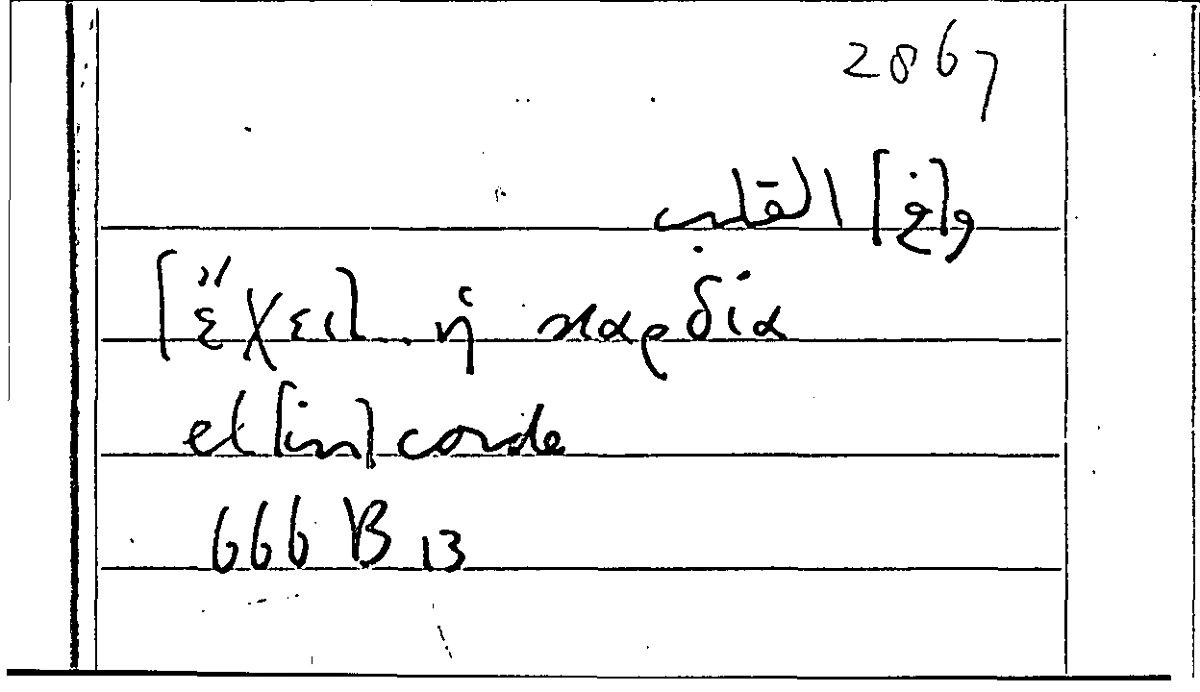 2867
و[في] القلب
[ἔχει] .. ἡ καρδία
et [in] corde
666 B 13